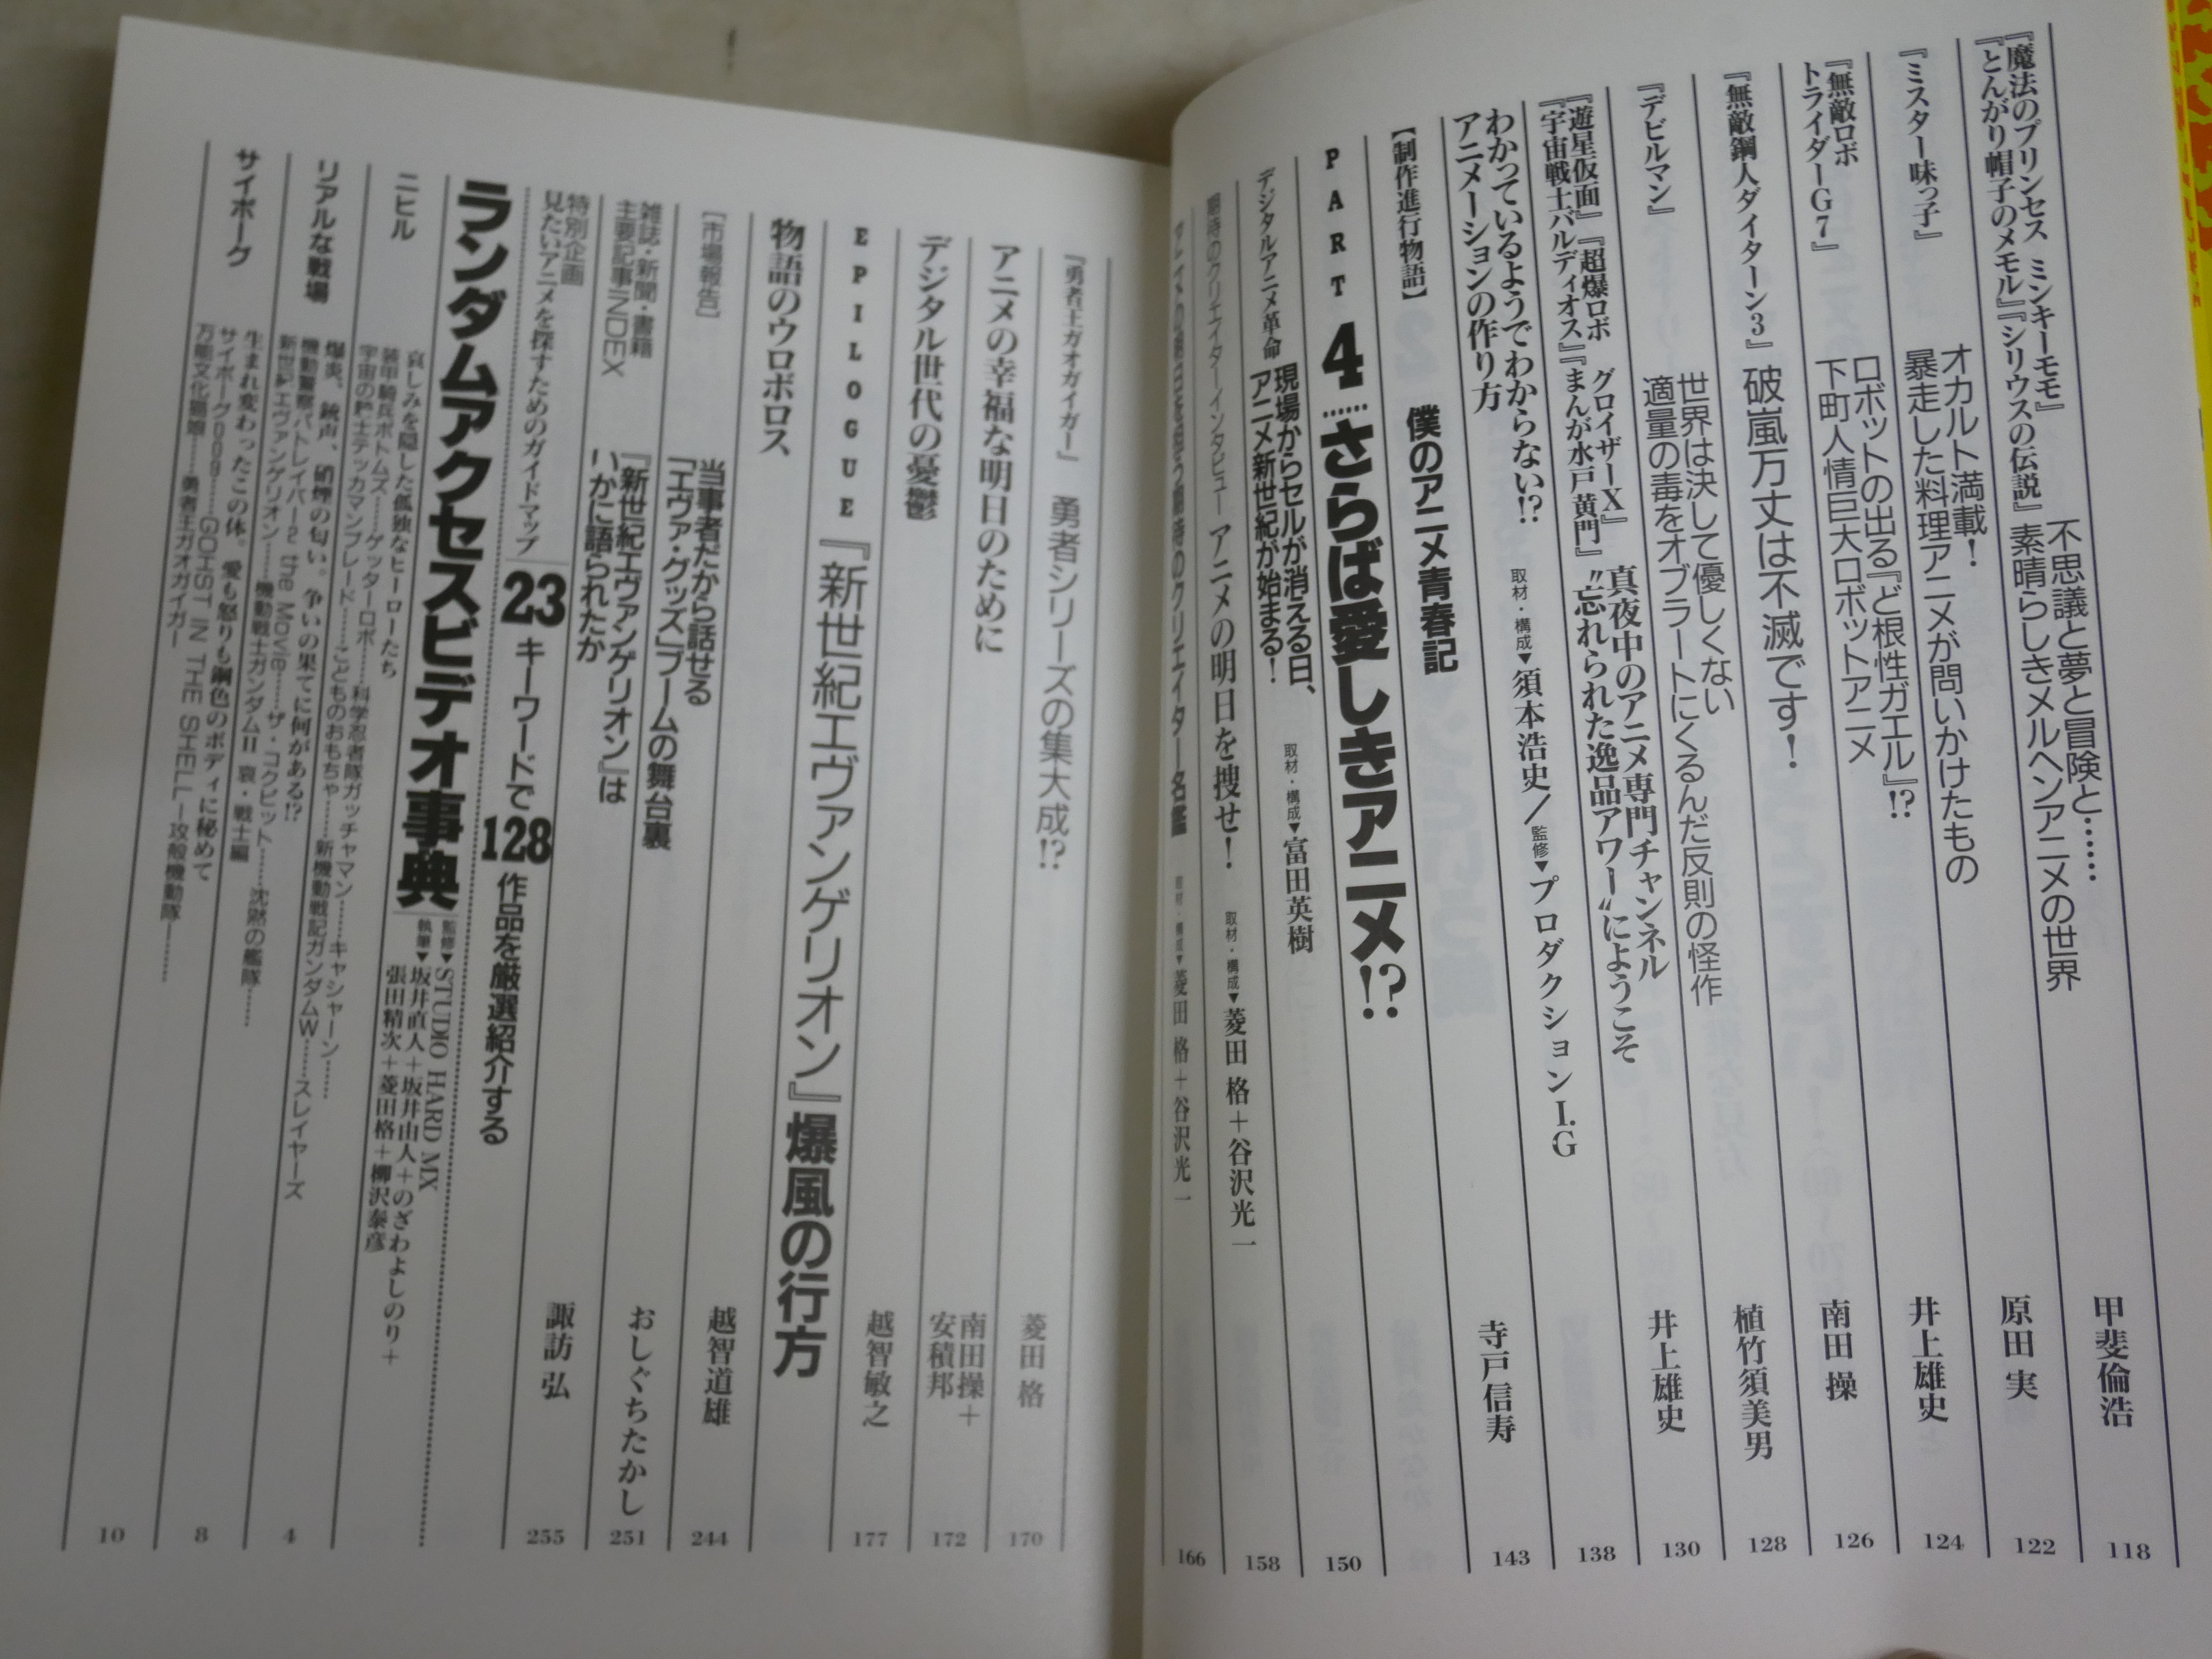 『魔法のプリンセス ミンキーモモ』
不思議と夢と冒険と……
甲斐倫浩
118
『とんがり帽子のメモル』『シリウスの伝説』
素晴らしきメルヘンアニメの世界
原田 実
122
『ミスター味っ子』
オカルト満載！
暴走した料理アニメが問いかけたもの
井上雄史
124
『無敵ロボ
トライダーG7』
ロボットの出る『ど根性ガエル』!?
下町人情巨大ロボットアニメ
南田 操
126
『無敵鋼人ダイターン3』
破嵐万丈は不滅です！
植竹須美男
128
『デビルマン』
世界は決して優しくない
適量の毒をオブラートにくるんだ反則の怪作
井上雄史
130
『遊星仮面』『超爆ロボ グロイザーX』
『宇宙戦士バルディオス』『まんが水戸黄門』
真夜中のアニメ専門チャンネル
〝忘れられた逸品アワー〟にようこそ
138
わかっているようでわからない!?
アニメーションの作り方
取材・構成▼須本浩史／監修▼プロダクションI.G
143
【制作進行物語】
僕のアニメ青春記
寺戸信寿
PART 4……さらば愛しきアニメ!?
150
デジタルアニメ革命
現場からセルが消える日、
アニメ新世紀が始まる！
取材・構成▼富田英樹
158
期待のクリエイターインタビュー
アニメの明日を捜せ！
取材・構成▼菱田 格＋谷沢光一
期待のクリエイター名鑑
取材・構成▼菱田 格＋谷沢光一
166
『勇者王ガオガイガー』
勇者シリーズの集大成!?
菱田 格
170
アニメの幸福な明日のために
南田操＋
安積邦
172
デジタル世代の憂鬱
越智敏之
177
EPILOGUE
『新世紀エヴァンゲリオン』爆風の行方
物語のウロボロス
越智道雄
244
［市場報告］
当事者だから話せる
「エヴァ・グッズ」ブームの舞台裏
おしぐちたかし
251
雑誌・新聞・書籍
主要記事INDEX
『新世紀エヴァンゲリオン』は
いかに語られたか
諏訪 弘
255
特別企画
見たいアニメを探すためのガイドマップ
23キーワードで128作品を厳選紹介する
ランダムアクセスビデオ事典
監修▼STUDIO HARD MX
執筆▼坂井直人＋坂井由人＋のざわよしのり＋
張田精次＋菱田格＋柳沢泰彦
ニヒル
哀しみを隠した孤独なヒーローたち
装甲騎兵ボトムズ……ゲッターロボ……科学忍者隊ガッチャマン……キャシャーン……
宇宙の騎士テッカマンブレード……こどものおもちゃ……新機動戦記ガンダムW……スレイヤーズ
4
リアルな戦場
爆炎、銃声、硝煙の匂い。争いの果てに何がある!?
機動警察パトレイバー2 the Movie……ザ・コクピット……沈黙の艦隊……
新世紀エヴァンゲリオン……機動戦士ガンダムII 哀・戦士編
8
サイボーグ
生まれ変わったこの体。愛も怒りも鋼色のボディに秘めて
サイボーグ009……GOHST IN THE SHELL―攻殻機動隊―……
万能文化猫娘……勇者王ガオガイガー
10